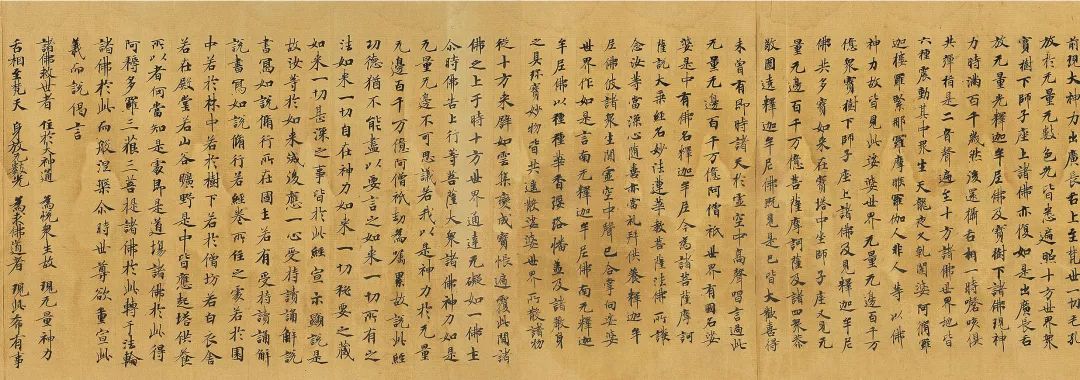 前現大神力出廣長舌上至梵世一切毛孔
放於无量无數色光皆悉遍照十方世界衆
寶樹下師子座上諸佛亦復如是出廣長舌
放无量光釋迦牟尼佛及寶樹下諸佛現神
力時滿百千歲然後還攝舌相一時謦咳俱
共彈指是二音聲遍至十方諸佛世界地皆
六種震動其中衆生天龍夜叉乾闥婆阿脩羅
迦樓羅緊那羅摩睺羅伽人非人等以佛
神力故皆見此娑婆世界无量无邊百千万
億衆寶樹下師子座上諸佛及見釋迦牟尼
佛共多寶如來在寶塔中坐師子座又見无
量无邊百千万億菩薩摩訶薩及諸四衆恭
敬圍遶釋迦牟尼佛既見是已皆大歡喜得
未曾有即時諸天於虛空中高聲唱言過此
无量无邊百千万億阿僧祇世界有國名娑
婆是中有佛名釋迦牟尼今為諸菩薩摩訶
薩說大乘經名妙法蓮華教菩薩法佛所護
念汝等當深心隨喜亦當礼拜供養釋迦牟
尼佛彼諸衆生聞虛空中聲已合掌向娑婆
世界作如是言南无釋迦牟尼佛南无釋迦
牟尼佛以種種華香瓔珞幡蓋及諸嚴身
之具珎寶妙物皆共遙散娑婆世界所散諸物
從十方來譬如雲集變成寶帳遍覆此間諸
佛之上于時十方世界通達无礙如一佛土
尒時佛告上行等菩薩大衆諸佛神力如是
无量无邊不可思議若我以是神力於无量
无邊百千万億阿僧祇劫為囑累故說此經
功德猶不能盡以要言之如來一切所有之
法如來一切自在神力如來一切秘要之藏
如來一切甚深之事皆於此經宣示顯說是
故汝等於如來滅後應一心受持讀誦解說
書寫如說脩行所在國土若有受持讀誦解
說書寫如說脩行若經卷所住之處若於園
中若於林中若於樹下若於僧坊若白衣舍
若在殿堂若山谷曠野是中皆應起塔供養
所以者何當知是處即是道場諸佛於此得
阿耨多羅三藐三菩提諸佛於此轉于法輪
諸佛於此而般涅槃尒時世尊欲重宣此
義而說偈言
諸佛救世者 住於大神通 為悅衆生故 現无量神力
舌相至梵天 身放无數光 為求佛道者 現此希有事